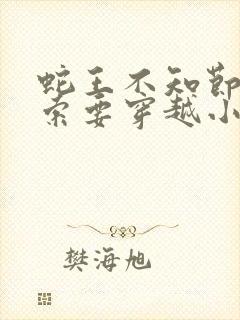 蛇王不知节
索要穿越小
樊海旭